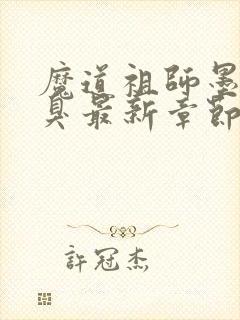 魔道祖師墨
臭最新章節
許冠杰